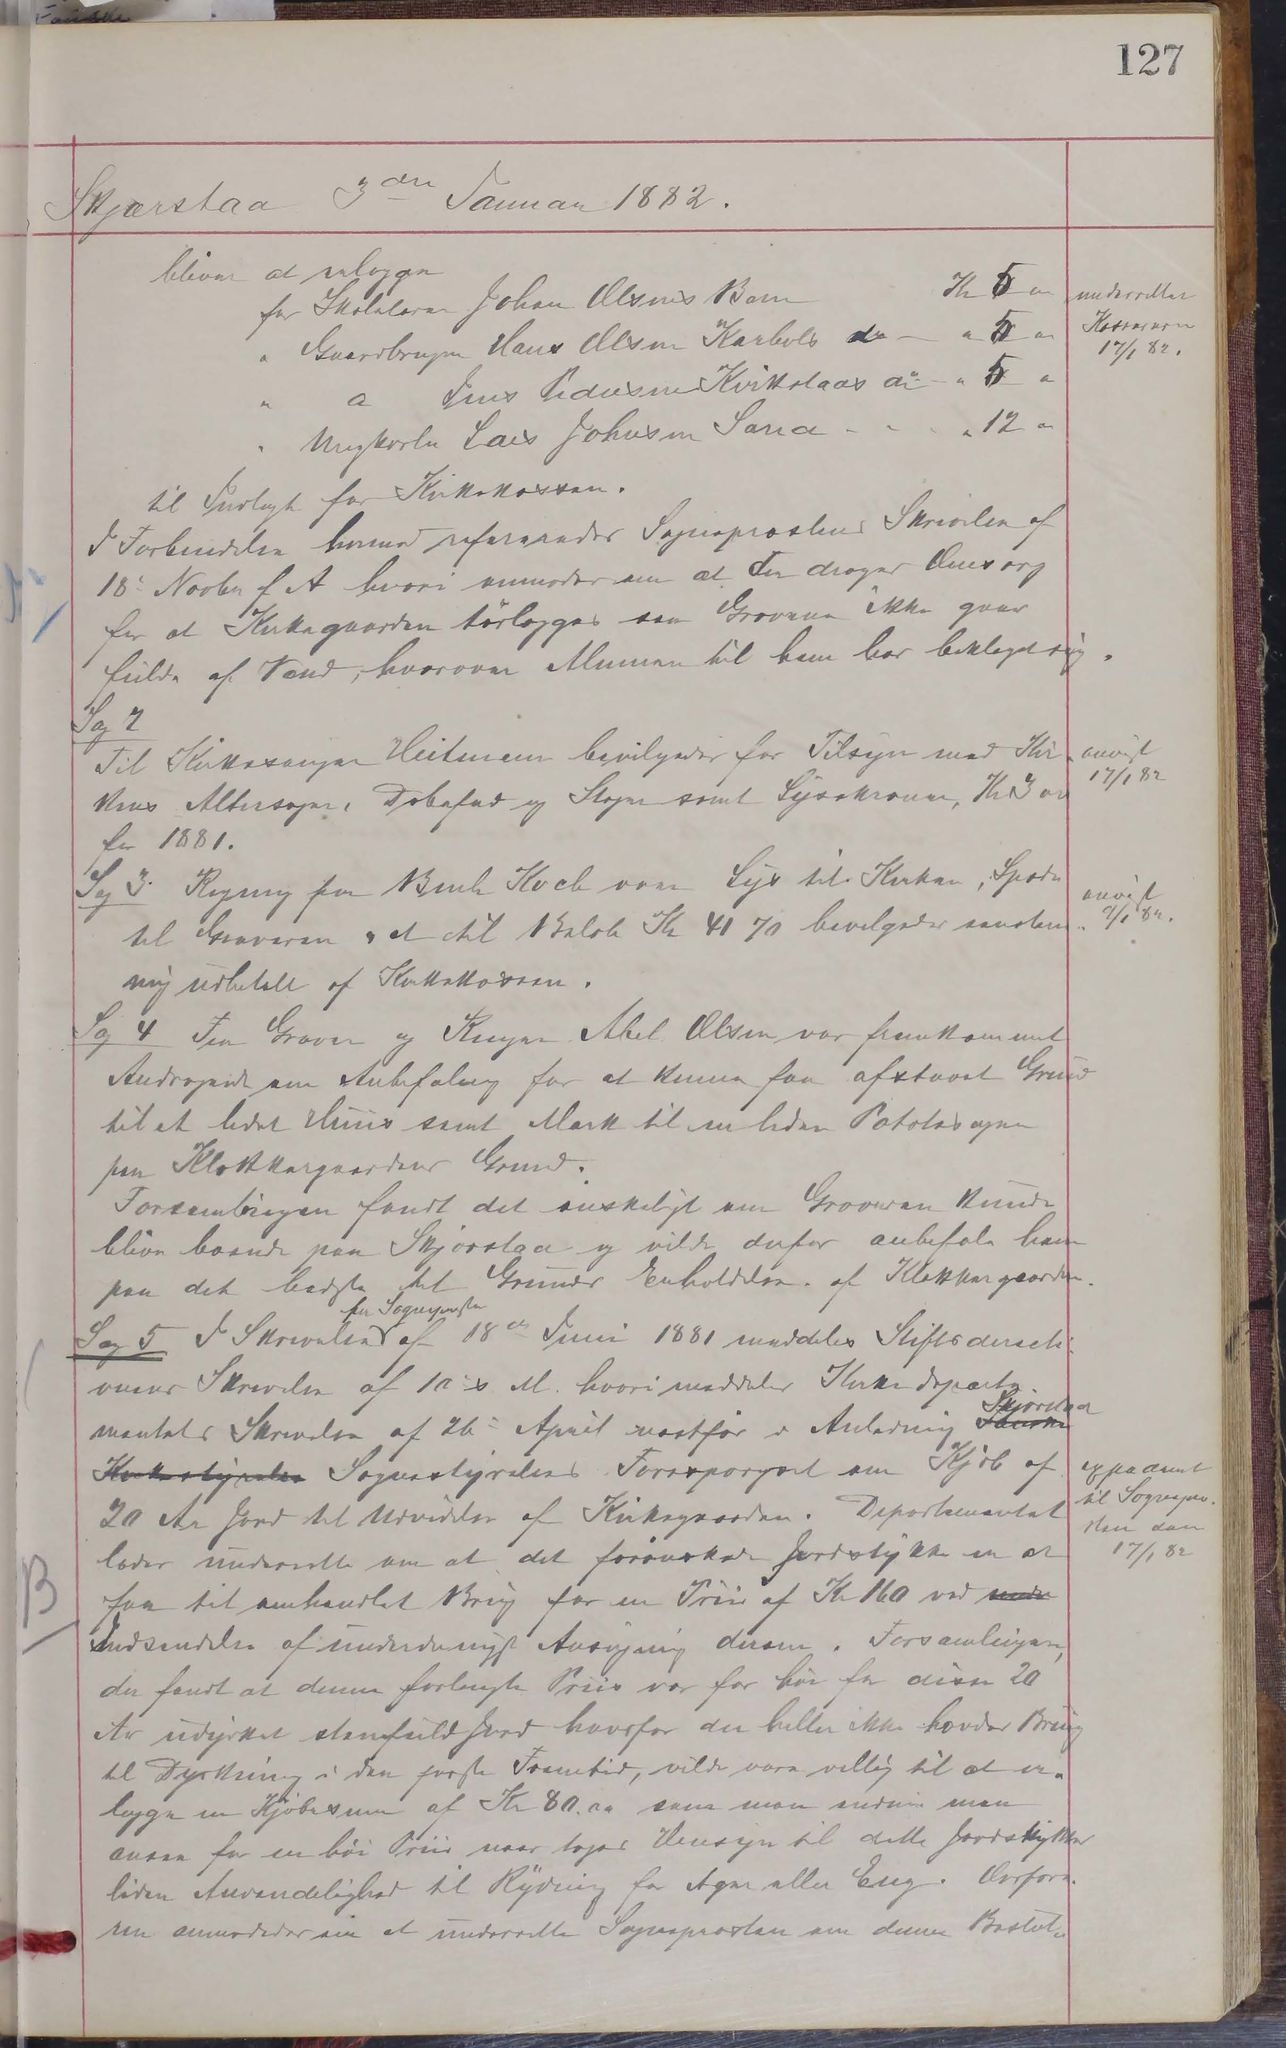 127
Skjærstaa 3die Januar 1882.
bliver at erlægge
for Skolelærer Johan Olsens Barn Kr 5 "
" Gaardbruger Hans Olsen Karbøls do — " 5 "
" " Jens Pedersen Kvikstaas do — " 5 "
" Ungkarln Lars Johnsen Sand - - - " 12 "
underrettet
Kassereren
17/1 82.
til Indtægt for Kirkekassen.
I Forbindelse hermed refereredes Sogneprestens Skrivelse af
18de Novbr f A hvori anmoder om at der drages Omsorg
for at Kirkegaarden tørlægges saa Gravene ikke gaar
fulde af Vand, hvorover Almuen til ham har beklaget sig.
Sag 2
Til Kirkesanger Heitmann bevilgedes for Tilsyn med Kir-
kens Altersager, Døbefad og Stager samt Lysekroner, Kr 3 "
for 1881.
anvist
17/1 82
Sag 3. Regning fra Bernh Koch over Lys til Kirken, Spade
til Graveren " et til Beløb Kr 41 70 bevilgedes eenstem-
mig udbetalt af Kirkekassen.
anvist
9/1 82.
Sag 4 Fra Graver og Ringer Abel Olsen var fremkommet
Andragende om Anbefaling for at kunne faa afstaaet Grund
til et lidet Huus samt Mark til en liden Potetesager
paa Klokkergaardens Grund.
Forsamlingen fandt det ønskeligt om Graveren kunde
blive boende paa Skjærstaa og vilde derfor anbefale ham
paa det bedste til Grunds Erholdelse af Klokkergaarden.
Sag 5 I Skrivelse fra Sognepresten af 18de Juni 1881 meddeles Stiftsdirecti-
onens Skrivelse af 10de s. M. hvori meddeles Kirkedeparte-
mentets Skrivelse af 26de April næstfør i Anledning Skjerstad
Sognestyrelses Forespørgsel om Kjøb af
20 Ar Jord til Udvidelse af Kirkegaarden. Departementet
lader underrette om at det forønskede Jordstykke er at
faa til omhandlet Brug for en Priis af Kr 160 ved
Indsendelse af underdanigst Ansøgning derom. Forsamlingen,
der fandt at denne forlangte Priis var for høi for disse 20
Ar udyrket steenfuld Jord hvorfor der heller ikke havdes Brug
til Dyrkning i den første Fremtid, vilde være villig til at er-
lægge en Kjøbesum af Kr 80.00 som man endnu maa
ansee for en høi Priis naar tages Hensyn til dette Jordstykkes
liden Anvendelighed til Rydning for Ager eller Eng. Ordføre-
ren anmodedes om at underrette Sognepresten om denne Beslut-
expederet
til Sognepre-
sten den
17/1 82
B